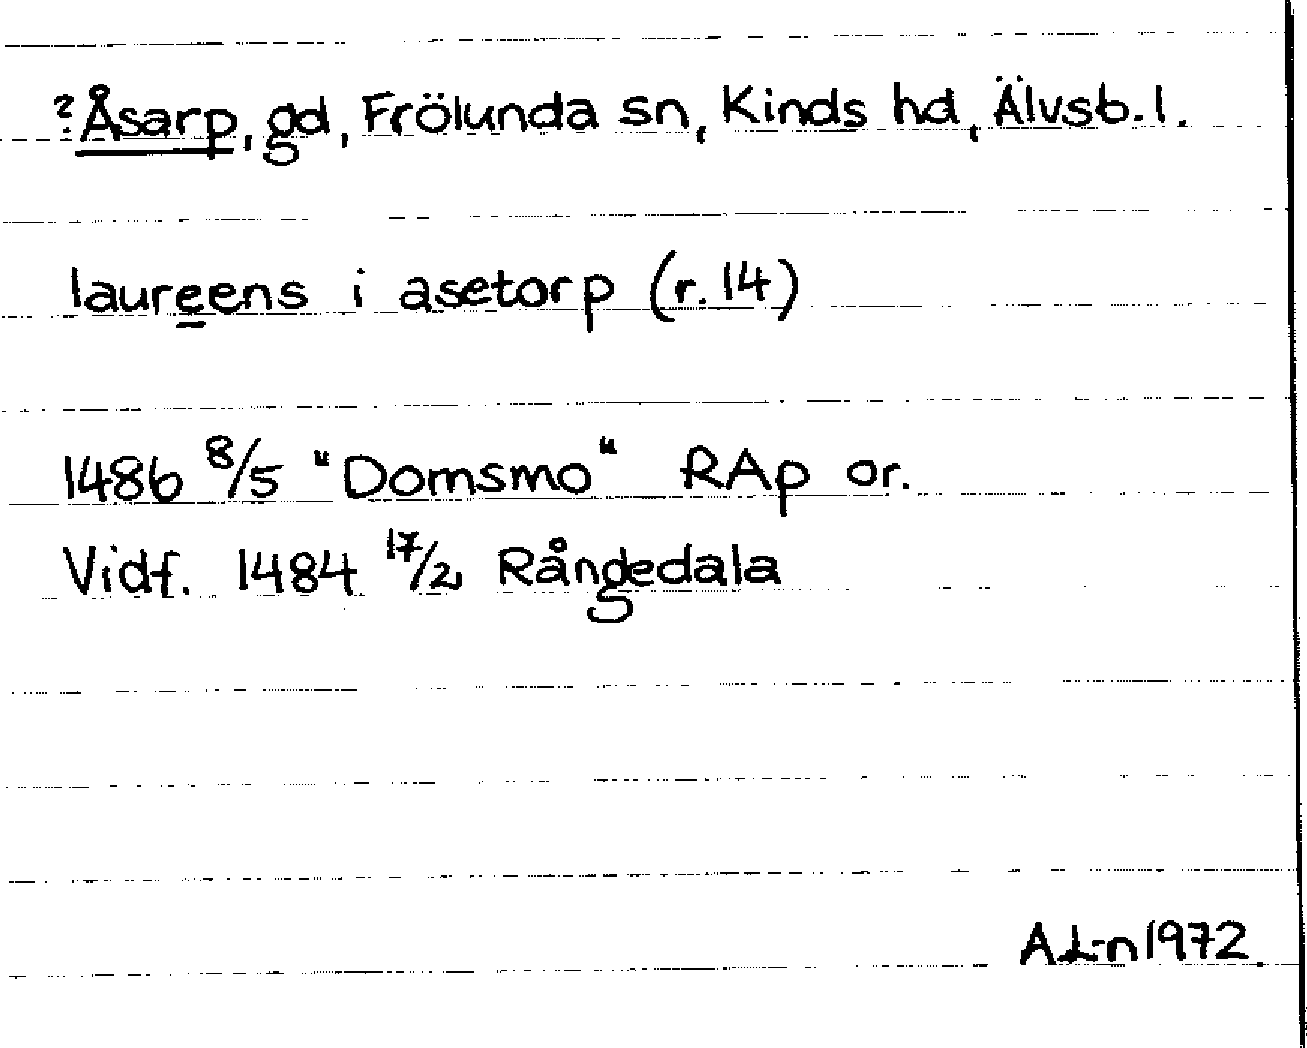 ? Åsarp, gd, Frölunda sn, Kinds hd, Älvsb. l.
laureens i asetorp (r. 14)
1486 8/5 "Domsmo" RAp or.
Vidf. 1484 17/2 Rångedala
A L-n 1972.